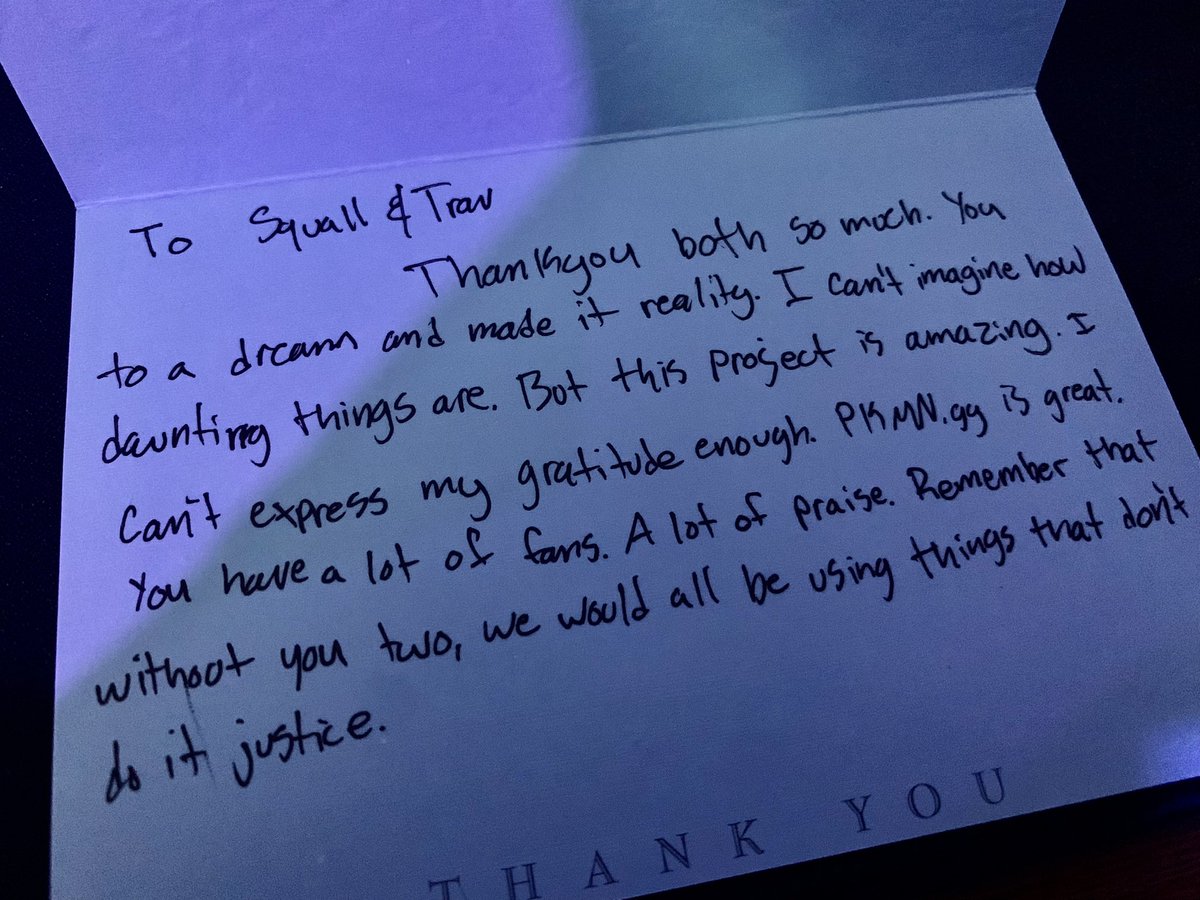 To Squall & Trav
Thankyou both so much. You
to a dream and made it reality. I can't imagine how
daunting things are. But this project is amazing. I
Can't express my gratitude enough. PKMN.gg is great.
You have a lot of fans. A lot of praise. Remember that
without you two, we would all be using things that don't
do it justice.
THANK YOU